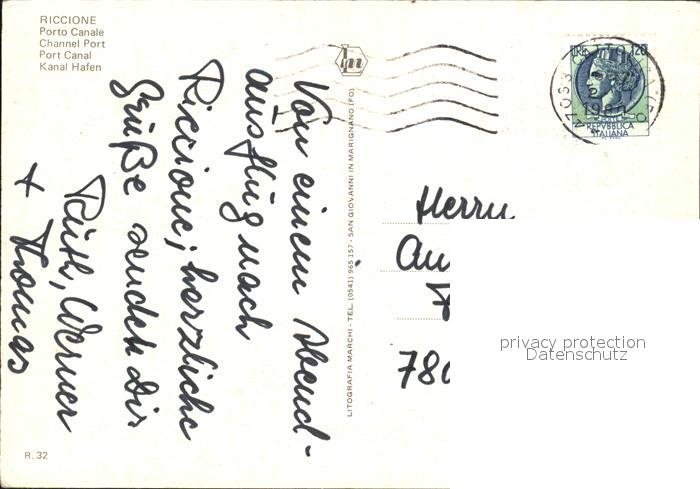 RICCIONE
Porto Canale
Channel Port
Port Canal
Kanal Hafen
Von einem Abend-
ausflug nach
Riccione, herzliche
Grüße sendet Dir
Ruth, Werner
+ Thomas
R. 32
LITOGRAFIA MARCHI - TEL. (0541) 965 157 - SAN GIOVANNI IN MARIGNANO (FO)
LIRE 120
POSTE
REPVBBLICA
ITALIANA
47033
Herrn
780
privacy protection
Datenschutz